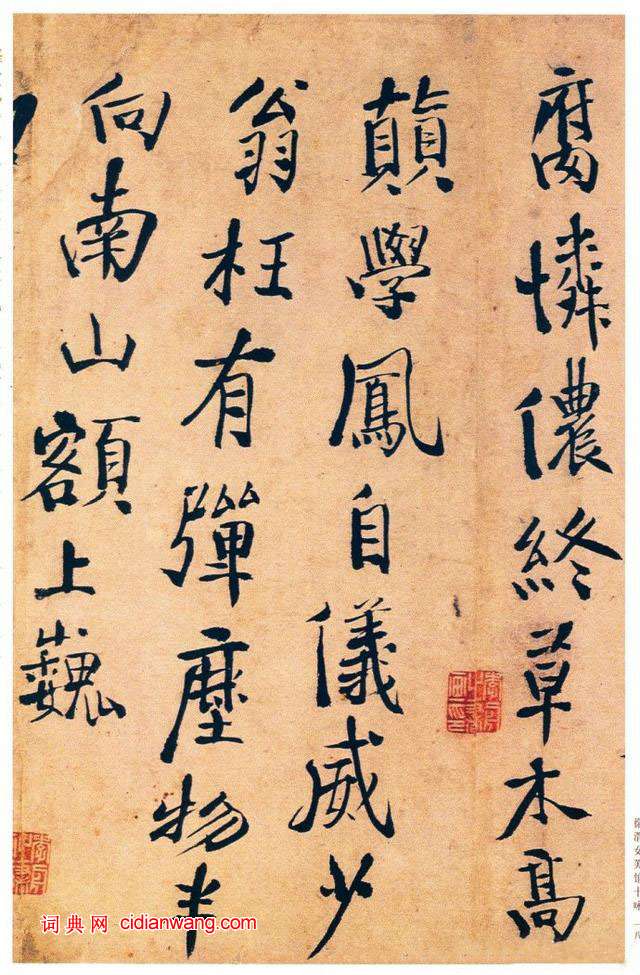 腐憐儂終草木高
顛學鳳自儀威少
翁枉有彈塵物半
向南山額上巍
词典网 cidianwang.com